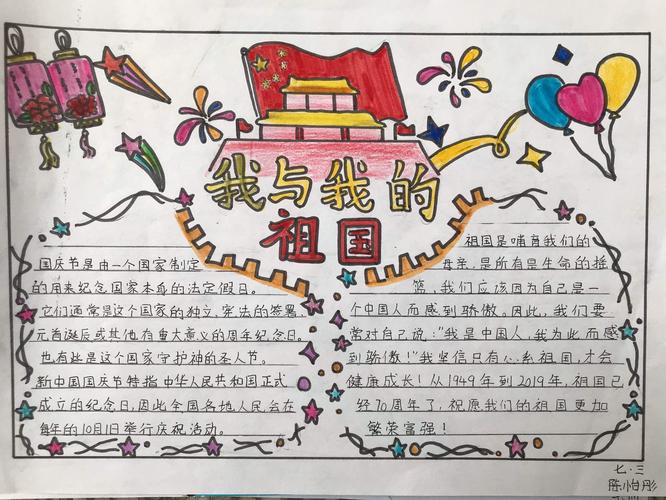 我与我的
祖国
国庆节是由一个国家制定
的用来纪念国家本身的法定假日。
它们通常是这个国家的独立、宪法的签署、
元首诞辰或其他有重大意义的周年纪念日。
也有些是这个国家守护神的圣人节。
新中国国庆节特指中华人民共和国正式
成立的纪念日,因此全国各地人民会在
每年的10月1日举行庆祝活动。
祖国是哺育我们的
母亲,是所有是生命的摇
篮,我们应该因为自己是一
个中国人而感到骄傲。因此,我们要
常对自己说:"我是中国人,我为此而感
到骄傲!"我坚信只有心系祖国,才会
健康成长!从1949年到2019年,祖国已
经70周年了,祝愿我们的祖国更加
繁荣富强!
七.三
陈怡彤